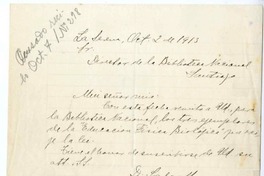 Acusado reci-
bo Oct. 4 / No 298
La Serena, Oct 2 de 1913
Sr.
Director de la Biblioteca Nacional
Santiago
Muy señor mio:
Con esta fecha remito a Ud. para
la Biblioteca Nacional, los dos ejemplares
de la Educacion Fisica Biolójica
la lei.
de Ud. su
att. S.S.